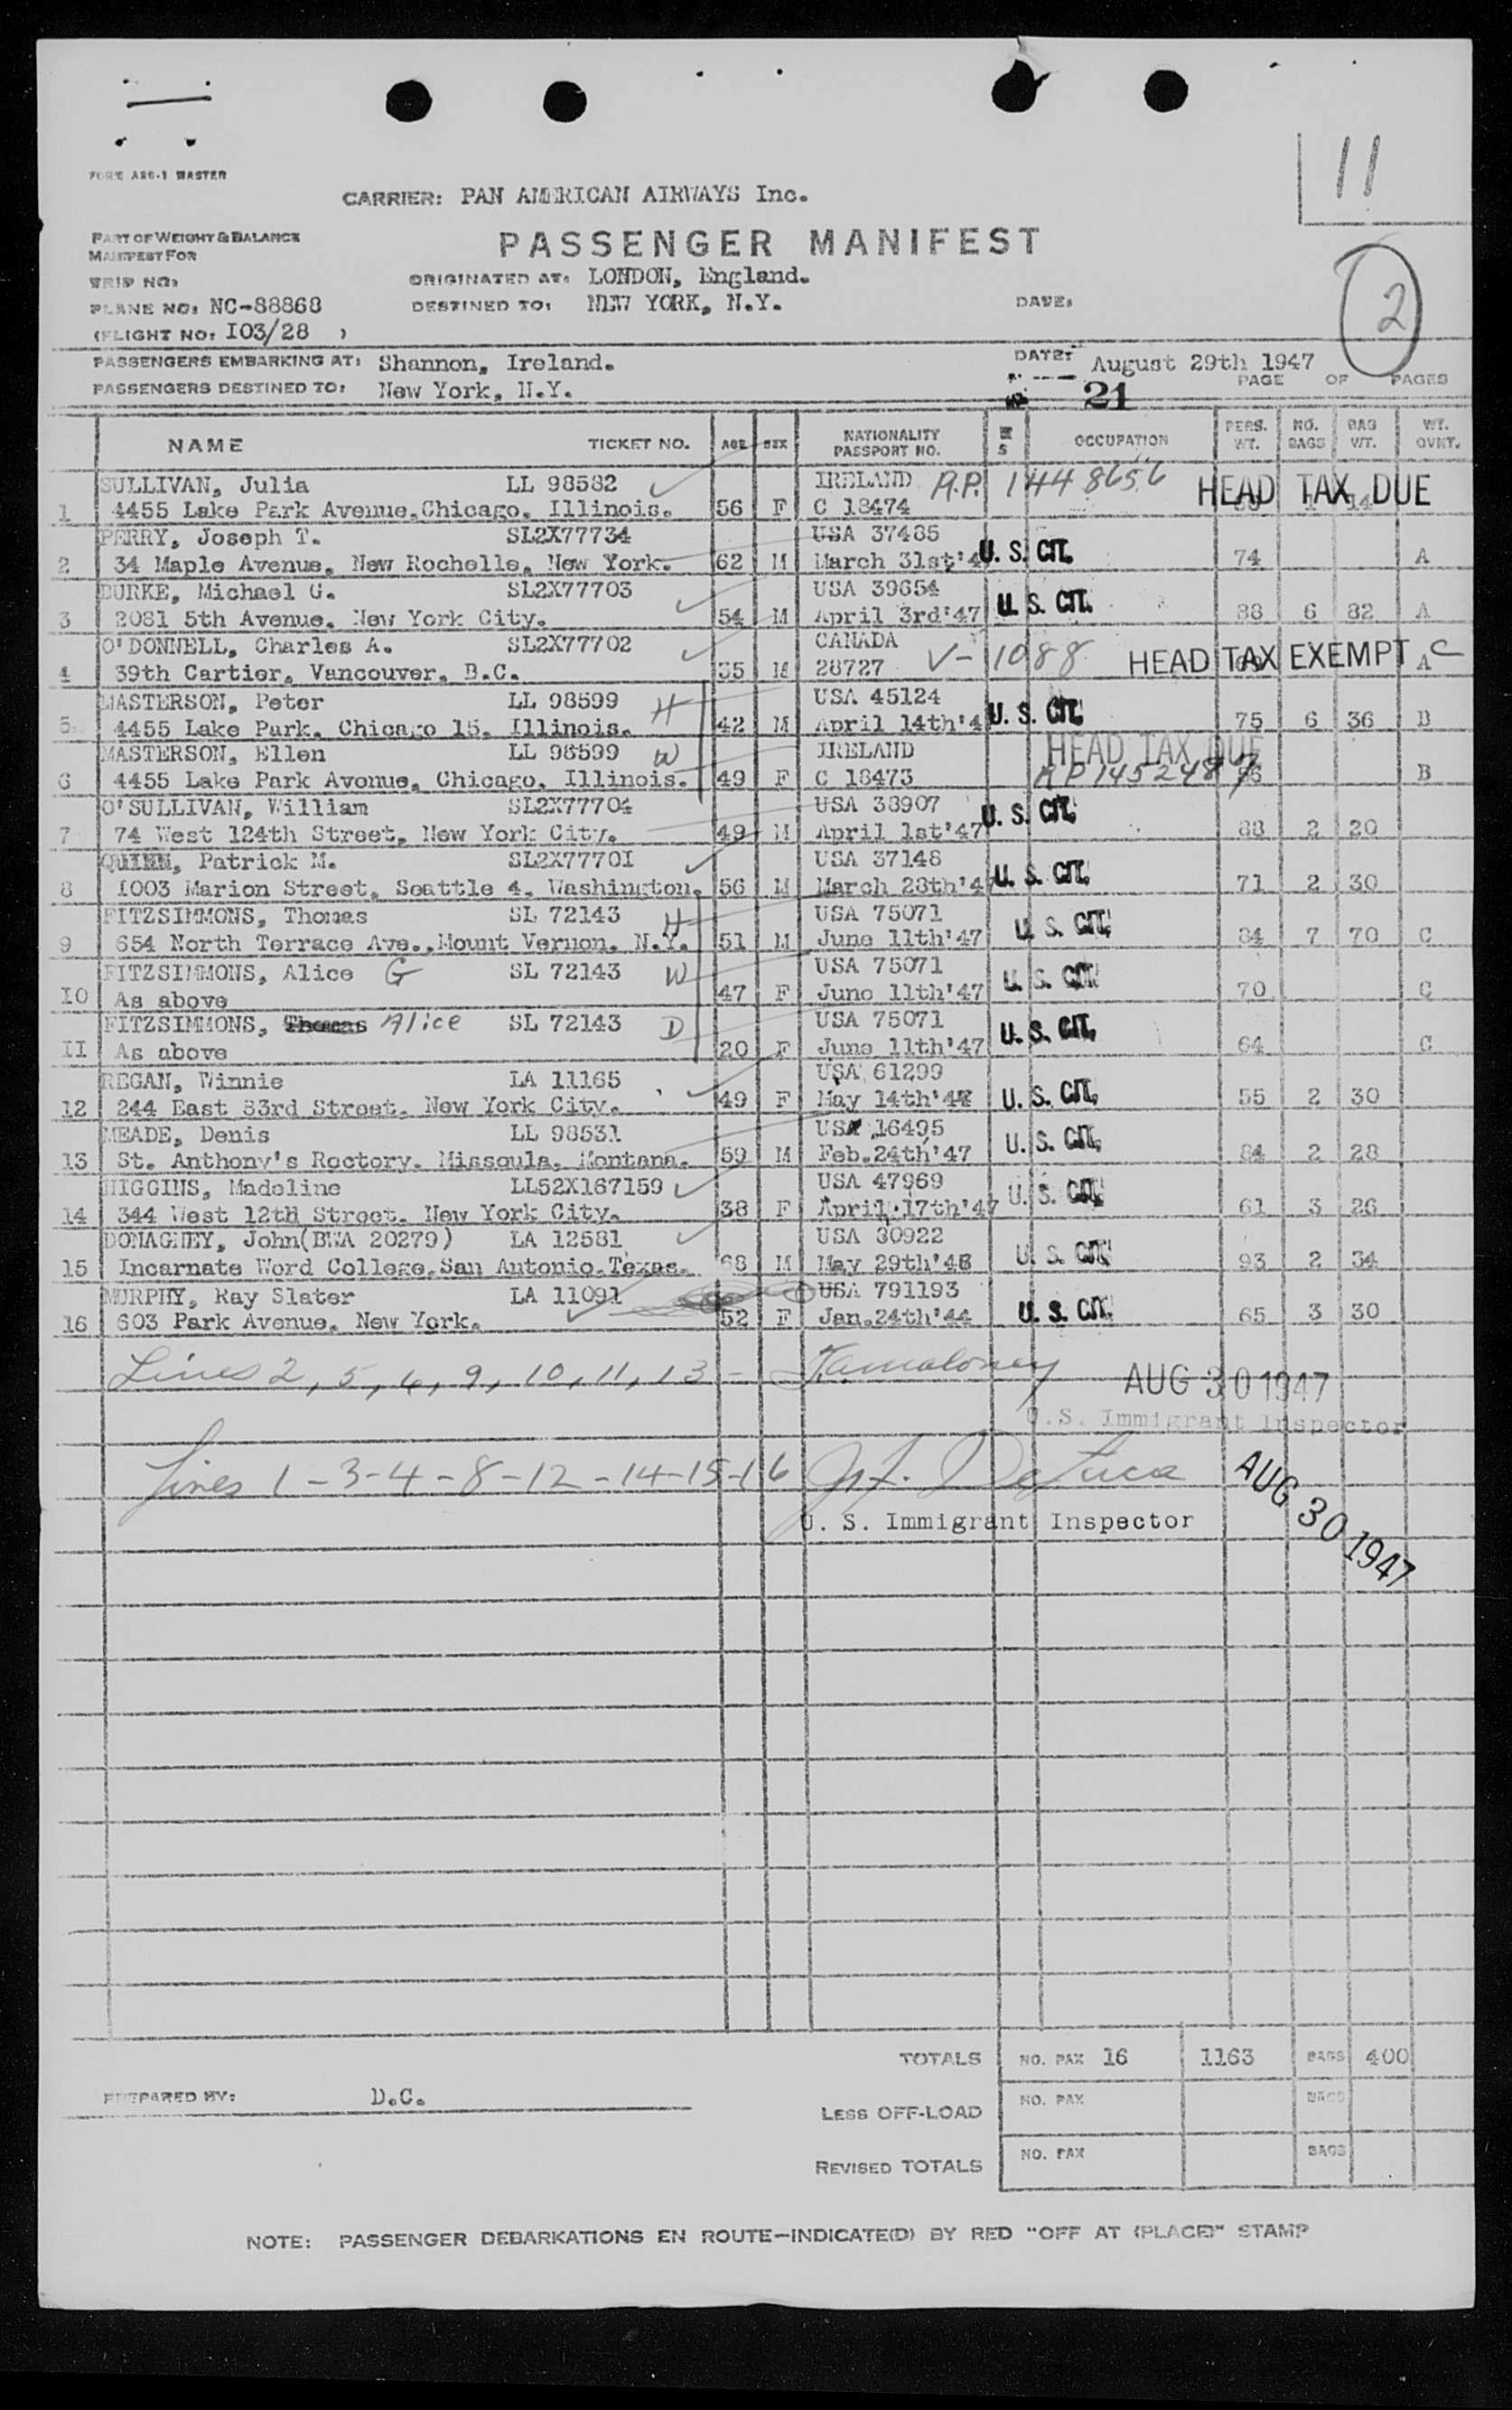 11
FORM ASG-1 MASTER
CARRIER: PAN AMERICAN AIRWAYS Inc.
PART OF WEIGHT & BALANCE
MANIFEST FOR
PASSENGER MANIFEST
TRIP NO:
ORIGINATED AT: LONDON, England.
PLANE NO: NC-88868
DESTINED TO: NEW YORK, N.Y.
DATE:
2
(FLIGHT NO: I03/28 )
PASSENGERS EMBARKING AT: Shannon, Ireland.
DATE: August 29th 1947
PASSENGERS DESTINED TO: New York, N.Y.
PAGE OF PAGES
21
NAME TICKET NO. AGE SEX NATIONALITY PASSPORT NO. OCCUPATION PERS. WT. NO. BAGS BAG WT. WT. OVNT.
SULLIVAN, Julia LL 98582 IRELAND A.P. 1448656 HEAD TAX DUE
1 4455 Lake Park Avenue, Chicago, Illinois. 56 F C 18474
PERRY, Joseph T. SL2X77734 USA 37485
2 34 Maple Avenue, New Rochelle, New York. 62 M March 31st'4 U. S. CIT. 74 A
BURKE, Michael G. SL2X77703 USA 39654
3 2081 5th Avenue, New York City. 54 M April 3rd'47 U. S. CIT. 88 6 82 A
O'DONNELL, Charles A. SL2X77702 CANADA
4 39th Cartier, Vancouver, B.C. 35 M 28727 V-1088 HEAD TAX EXEMPT A C
MASTERSON, Peter LL 98599 H USA 45124
5 4455 Lake Park, Chicago 15, Illinois. 42 M April 14th'4 U. S. CIT. 75 6 36 B
MASTERSON, Ellen LL 98599 W IRELAND HEAD TAX DUE
6 4455 Lake Park Avenue, Chicago, Illinois. 49 F C 18473 AP 1452487 B
O'SULLIVAN, William SL2X77704 USA 38907
7 74 West 124th Street, New York City. 49 M April 1st'47 U. S. CIT. 88 2 20
QUINN, Patrick M. SL2X7770I USA 37148
8 I003 Marion Street, Seattle 4, Washington. 56 M March 28th'4 U. S. CIT. 71 2 30
FITZSIMMONS, Thomas SL 72143 H USA 75071
9 654 North Terrace Ave., Mount Vernon, N.Y. 51 M June 11th'47 U. S. CIT. 84 7 70 C
FITZSIMMONS, Alice G SL 72143 W USA 75071
I0 As above 47 F June 11th'47 U. S. CIT. 70 C
FITZSIMMONS, Thomas Alice SL 72143 D USA 75071
II As above 20 F June 11th'47 U. S. CIT. 64 C
REGAN, Winnie LA 11165 USA 61299
12 244 East 83rd Street, New York City. 49 F May 14th'47 U. S. CIT. 55 2 30
MEADE, Denis LL 98531 USA 16495
13 St. Anthony's Rectory, Missoula, Montana. 59 M Feb.24th'47 U. S. CIT. 84 2 28
HIGGINS, Madeline LL52X167159 USA 47969
14 344 West 12th Street, New York City. 38 F April 17th'47 U. S. CIT. 61 3 26
DONAGHEY, John(BWA 20279) LA 12581 USA 30922
15 Incarnate Word College, San Antonio, Texas. 68 M May 29th'46 U. S. CIT. 93 2 34
MURPHY, Ray Slater LA 11091 USA 791193
16 603 Park Avenue, New York. 52 F Jan.24th'44 U. S. CIT. 65 3 30
Lines 2, 5, 6, 9, 10, 11, 13 -
AUG 30 1947
U.S. Immigrant Inspector
Lines 1-3-4-8-12-14-15-16
U. S. Immigrant Inspector
AUG 30 1947
TOTALS NO. PAX 16 1163 BAGS 400
PREPARED BY: D.C.
LESS OFF-LOAD NO. PAX BAGS
REVISED TOTALS NO. PAX BAGS
NOTE: PASSENGER DEBARKATIONS EN ROUTE-INDICATE(D) BY RED "OFF AT (PLACE)" STAMP